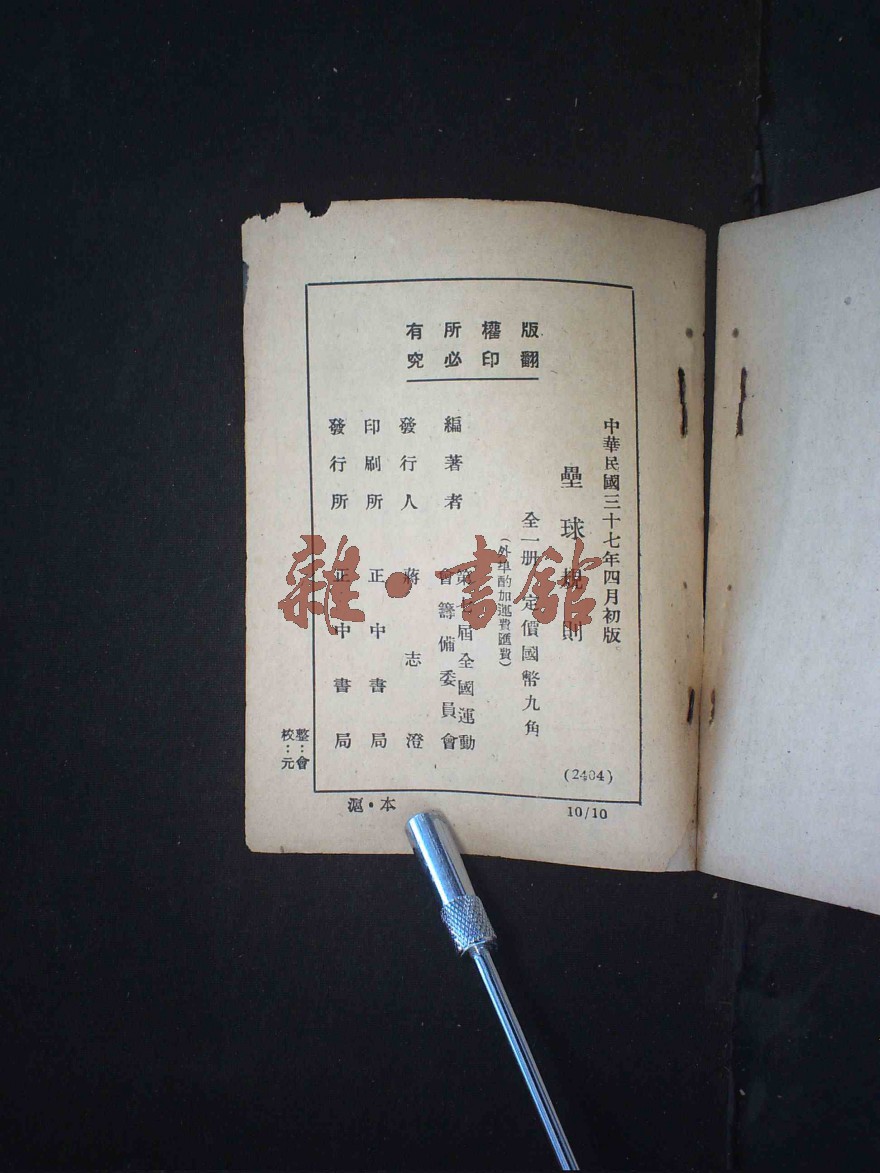 版權所有
翻印必究
中華民國三十七年四月初版
壘球規則
全一册 定價國幣九角
(外埠酌加運費匯費)
編著者 第七屆全國運動
會籌備委員會
發行人 蔣志澄
印刷所 正中書局
發行所 正中書局
(2404)
整：會
校：元
滬·本
10/10
雜·書館